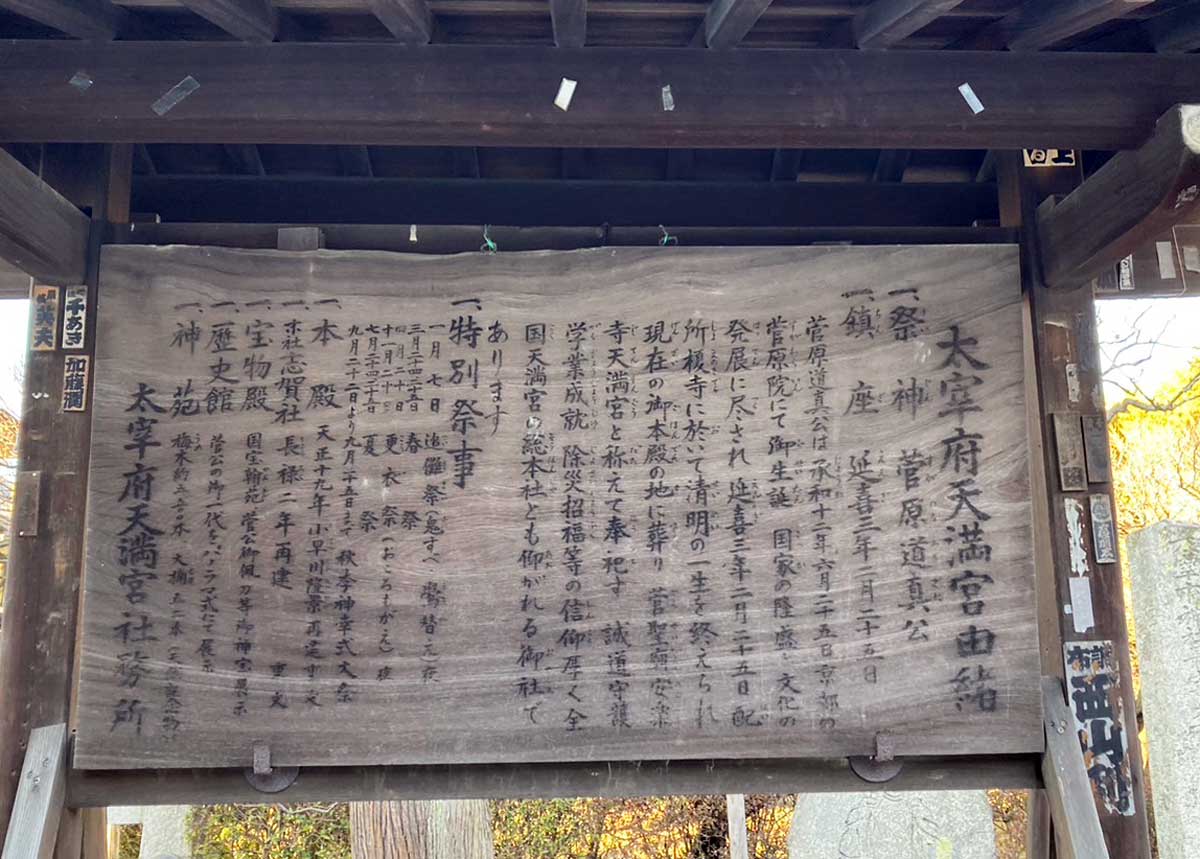 太宰府天満宮由緒
一、祭神 菅原道真公
一、鎮座 延喜三年二月二十五日
菅原道真公は 承和十二年六月二十五日京都の
菅原院にて御生誕 国家の隆盛と文化の
発展に尽され 延喜三年二月二十五日 配
所榎寺に於いて清明の一生を終えられ
現在の御本殿の地に葬り 菅聖廟 安楽
寺天満宮と称えて奉祀す 誠道守護
学業成就 除災招福等の信仰厚く全
国天満宮の総本社とも仰がれる御社で
あります
一、特別祭事
一月七日 追儺祭(鬼すべ 鷽替え)
三月二十四二十五日 春祭
四月二十日 更衣祭(おころもがえ)
十一月二十日
七月二十四二十五日 夏祭
九月二十二日より九月二十五日まで 秋季神幸式大祭
一、本殿 天正十九年 小早川隆景 再建 重文
一、末社志賀社 長禄二年再建 重文
一、宝物殿 国宝翰苑 菅公御佩刀等御神宝展示
一、歴史館 菅公の御一代をパノラマ式にて展示
一、神苑 梅木約五千本 大樟五十本
太宰府天満宮社務所
千あき
加藤潤